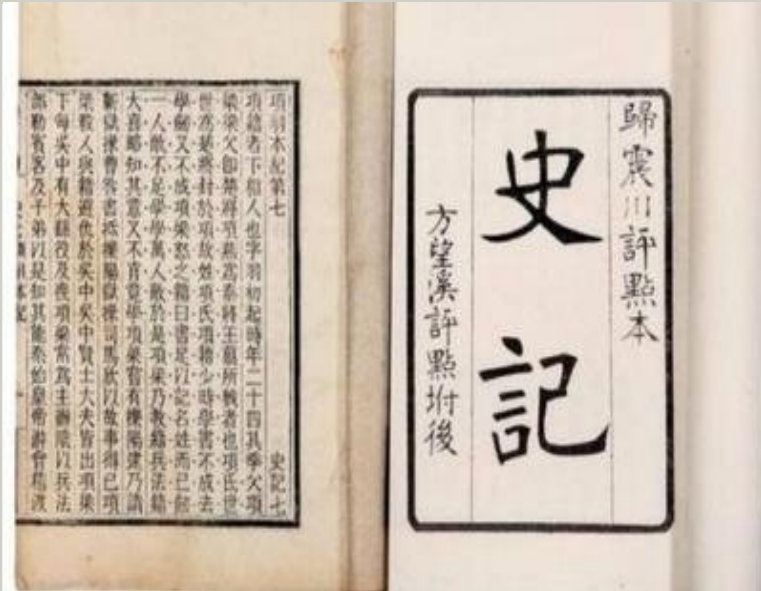 歸震川評點本
史記
方望溪評點坿後
項羽本紀第七 史記七
項籍者下相人也字羽初起時年二十四其季父項
梁梁父卽楚將項燕爲秦將王翦所戮者也項氏世
世爲楚將封於項故姓項氏項籍少時學書不成去
學劍又不成項梁怒之籍曰書足以記名姓而已劍
一人敵不足學學萬人敵於是項梁乃敎籍兵法籍
大喜略知其意又不肯竟學項梁嘗有櫟陽逮乃請
蘄獄掾曹咎書抵櫟陽獄掾司馬欣以故事得已項
梁殺人與籍避仇於吳中吳中賢士大夫皆出項梁
下每吳中有大繇役及喪項梁常爲主辦陰以兵法
部勒賓客及子弟以是知其能秦始皇帝游會稽渡